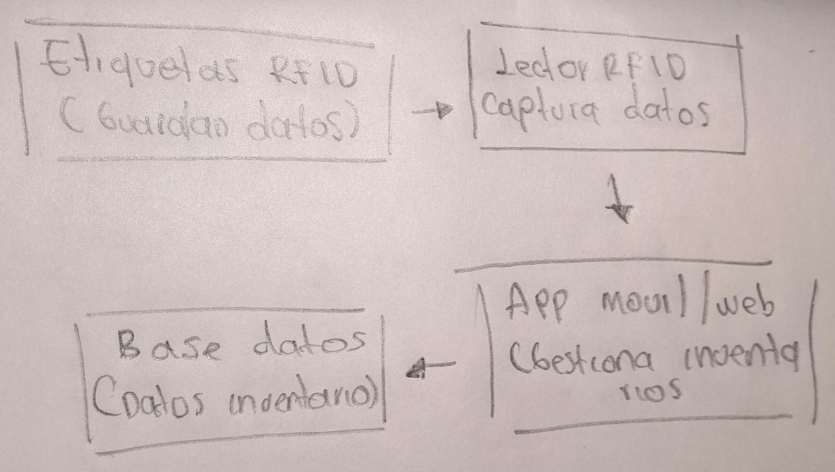 Etiquetas RFID
(Guardan datos)
Lector RFID
captura datos
App movil/web
(Gestiona inventa
rios
Base datos
(Datos inventario)